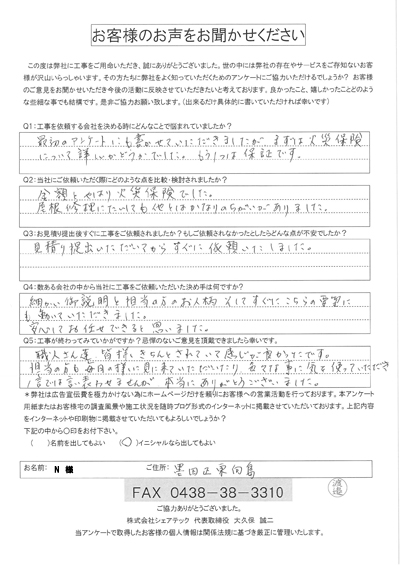 お客様のお声をお聞かせください
この度は弊社に工事をご用命いただき、誠にありがとうございました。世の中には弊社の存在やサービスをご存知ないお客
様が沢山いらっしゃいます。その方たちに弊社をよく知っていただくためのアンケートにご協力いただけるでしょうか？ お客様
のご意見をお聞かせいただき今後の活動に反映させていただきたいと考えております。良かったこと、嬉しかったことどのよう
な些細な事でも結構です。是非ご協力お願い致します。（出来るだけ具体的に書いていただければ幸いです）
Q1：工事を依頼する会社を決める時にどんなことで悩まれていましたか？
最初のアンケートにも書かせていただきましたが まずは火災保険
について詳しいかどうかでした。もう1つは保証です。
Q2：当社にご依頼いただく際にどのような点を比較・検討されましたか？
金額とやはり火災保険でした。
屋根修理にたいしても他とはかなりのちがいがありました。
Q3：お見積り提出後すぐにご依頼されましたか？もしご依頼されなかったとしたらどんな点が不安でしたか？
見積り提出いただいてからすぐに依頼いたしました。
Q4：数ある会社の中から当社に工事をご依頼いただいた決め手は何ですか？
細かい御説明と担当の方のお人柄 そしてすぐにこちらの要望に
も動いていただきました。
安心してお任せできると思いました。
Q5：工事が終わってみていかがですか？忌憚のないご意見を頂戴できましたら幸いです。
職人さん達 皆様、きちんとされていて感じが良かったです。
担当の方も毎日の様に見に来ていただいたり、色々な事に気を使っていただき
1言では言い表わせませんが 本当にありがとうございました。
＊弊社は広告宣伝費を極力かけない為にホームページだけを頼りにお客様への営業活動を行っております。本アンケート
用紙またはお客様宅の調査風景や施工状況を随時ブログ形式のインターネットに掲載させていただいております。上記内容
をインターネットや印刷物に掲載させていただいてもよろしいでしょうか？
下記の中から〇印をお付下さい。
（　）名前を出してもよい　（〇）イニシャルなら出してもよい
お名前： N 様　ご住所： 墨田区東向島
FAX 0438-38-3310
渡邉
ご協力ありがとうございました。
株式会社シェアテック 代表取締役 大久保 誠二
当アンケートで取得したお客様の個人情報は関係法規に基づき厳正に管理いたします。